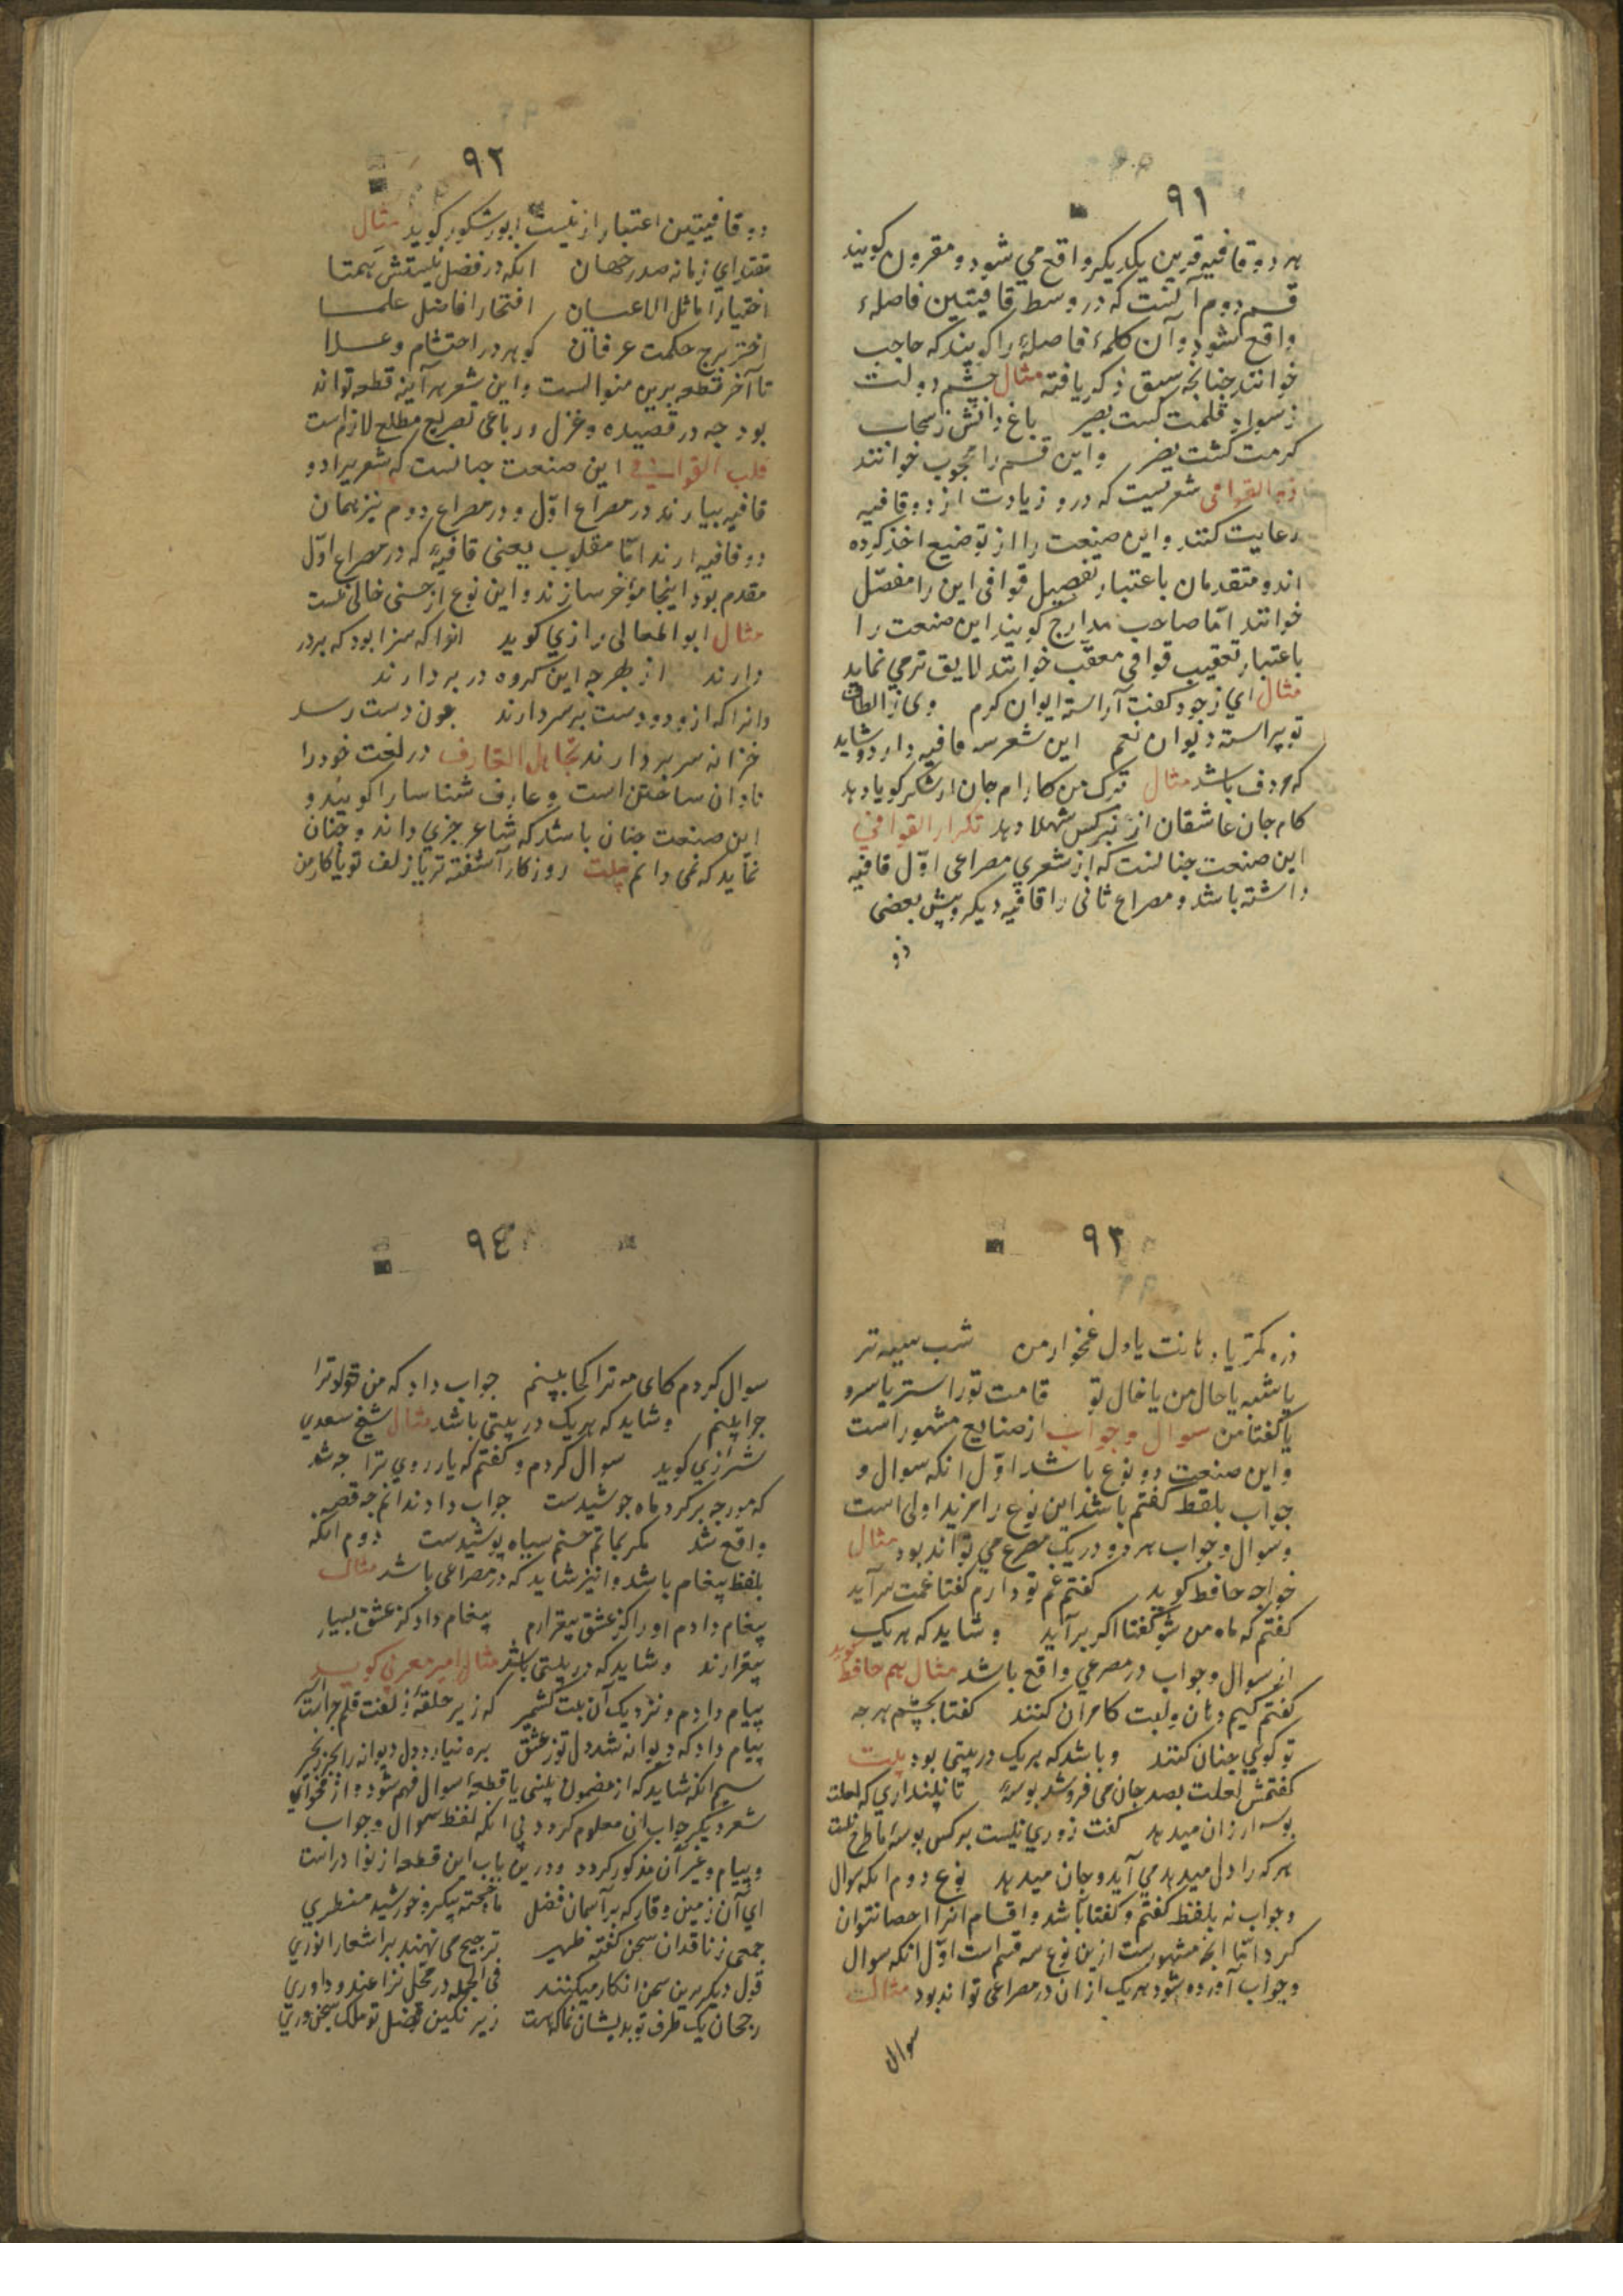 ٩١
هر دو قافیه قرین یکدیگر واقع می شود و مقرون کویند
قسم دوم آنست که در وسط قافیتین فاصلهٔ
واقع شود و آن کلمهٔ فاصله را کویند که حاجب
خوانند چنانجه سبق ذکر یافته مثال چشم دولت
ز سواد قلمت کست بصیر باغ دانش ز سحاب
کرمت کشت نضر و این قسم را محجوب خوانند
ذو القوافی شعریست که درو زیادت از دو قافیه
رعایت کنند و این صنعت را از توضیع اخذ کرده
اند و متقدمان باعتبار تفصیل قوافی این را مفصّل
خوانند امّا صاحب مدارج کویند این صنعت را
باعتبار تعقیب قوافی معقّب خوانند لایق تر می نماید
مثال ای ز جود کفت آراسته ایوان کرم وی ز الطاف
تو پیراسته دیوان نعم این شعر سه قافیه دارد و شاید
که مردف باشد مثال ترک من کارام جان از شکر کویا دهد
کام جان عاشقان از نرکس شهلا دهد تکرار القوافی
این صنعت چنانست که از شعری مصراعی اوّل قافیه
داشته باشد و مصراع ثانی را قافیه دیکر و پیش بعضی
ذو
٩٢
دو قافیتین اعتبار از نیست ابو شکور کوید مثال
مقتدای زمانه صدر جهان انکه در فضل نیستش همتا
اختیار اماثل الاعیان افتخار افاضل علما
اختر برج حکمت عرفان کوهر در احتشام و علا
تا آخر قطعه برین منوالست و این شعر هر آینه قطعه تواند
بود جه در قصیده و غزل و رباعی تصریع مطلع لازم است
قلب القوافی این صنعت جنانست که شعریرا دو
قافیه بیارند در مصراع اوّل و در مصراع دوم نیز همان
دو قافیه ارند امّا مقلوب یعنی قافیهٔ که در مصراع اوّل
مقدم بود اینجا مؤخر سازند و این نوع از حسنی خالی نیست
مثال ابو المعالی رازی کوید انرا که سزا بود که بر در
دارند از بهر جه این کروه در بر دارند
وانرا که ازو دو دست بر سر دارند جون دست رسد
خزانه سر بر دارند تجاهل العارف در لغت خود را
نادان ساختن است و عارف شناسا را کویند و
این صنعت جنان باشد که شاعر جزی داند و جنان
نماید که نمی دانم بیت روزکار آشفته تر یا زلف تو یا کار من
٩٣
ذره کمتر یا دهانت یا دل غمخوار من شب سیه تر
یا شبه یا حال من یا خال تو قامت تو راستر یا سرو
یا کفتا من سوال و جواب از صنایع مشهور است
و این صنعت دو نوع باشد اوّل انکه سوال و
جواب بلفظ کفتم باشد این نوع را مزید اولی است
و سوال و جواب هر دو در یک مصرع می تواند بود مثال
خواجه حافظ کوید کفتم غم تو دارم کفتا غمت سر آید
کفتم که ماه من شو کفتا اکر بر آید و شاید که هر یک
از سوال و جواب در مصرعی واقع باشد مثال هم حافظ کوید
کفتم کیم دهان و لبت کامران کنند کفتا بچشم هر جه
تو کوی جنان کنند و باشد که هر یک در بیتی بود بیت
کفتمش لعلت بصد جان می فروشد بوسهٔ تا نپنداری که لعلت
بوسه ارزان میدهد کفت زوری نیست بر کس بوسهٔ ما طرح نیست
هر که را دل میدهد می آید و جان میدهد نوع دوم انکه سوال
و جواب نه بلفظ کفتم و کفتا باشد و اقسام انرا احصا نتوان
کرد امّا انجه مشهورست ازین نوع سه قسم است اوّل انکه سوال
و جواب آورده شود هر یک از ان در مصراعی تواند بود مثال
سوال
٩٤
سوال کردم کای مه ترا کجا بینم جواب داد که من خود ترا
جرا بینم و شاید که هر یک در بیتی باشد مثال شیخ سعدی
شیرازی کوید سوال کردم و کفتم که یار روی ترا جه شد
که مورجه بر کرد ماه جوشیدست جواب داد ندانم جه قصه
واقع شد مکر بماتم حسنم سیاه پوشیدست دوم انکه
بلفظ پیغام باشد و انیز شاید که در مصراعی باشد مثال
پیغام دادم او را کز عشق بیقرارم پیغام داد کز عشق بسیار
بیقرارند و شاید که در بیتی باشد مثال امیر معزی کوید
پیام دادم و نزدیک آن بت کشمیر که زیر حلقهٔ زلفت قلم جراست اسیر
پیام داد که دیوانه شد دل تو ز عشق بره نیارد دل دیوانه را بجز زنجیر
سیم انکه شاید که از مضمون بیتی یا قطعهٔ سوال فهم شود و از فحوای
شعر دیکر جواب ان معلوم کردد بی انکه لفظ سوال و جواب
و پیام و غیر آن مذکور کردد و درین باب این قطعه از نوادر است
ای آن زمین وقار که بر آسمان فضل ماه خجسته پیکر و خورشید منظری
جمعی ز ناقدان سخن کفته ظهیر ترجیح می نهند بر اشعار انوری
قول دیکر برین سخن انکار میکنند فی الجمله در محل نزاعند و داوری
رجحان یک طرف تو بدیشان نما که هست زیر نکین فضل تو ملک سخنوری